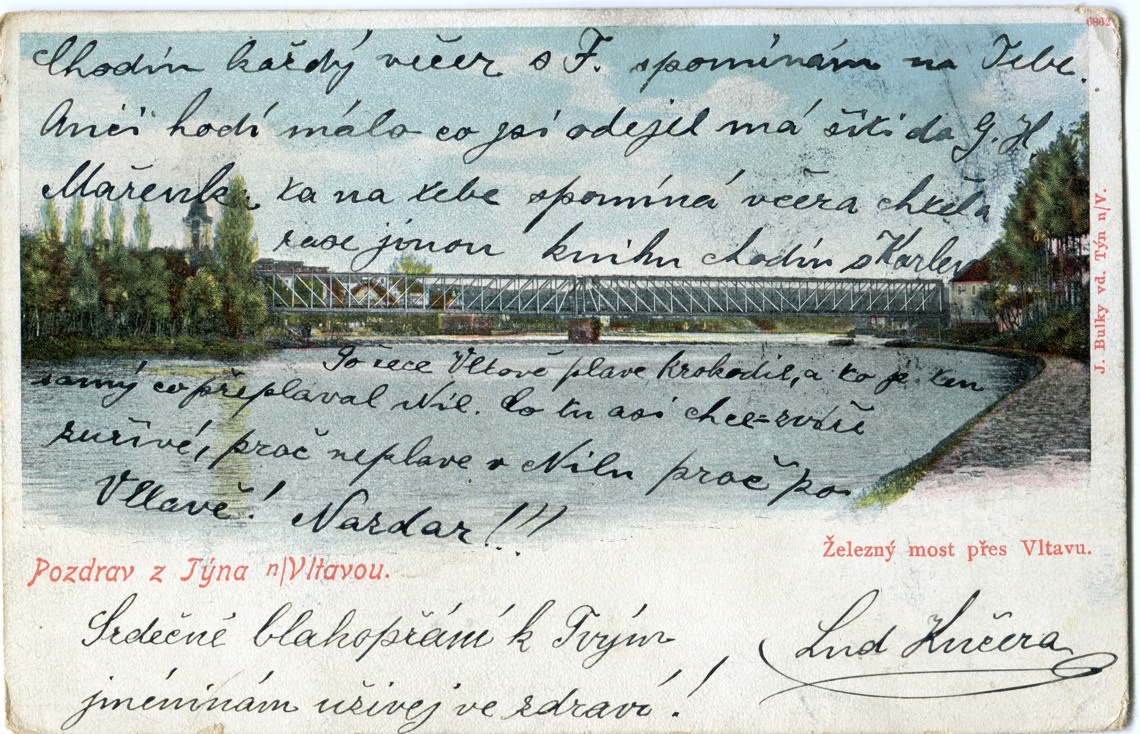 6862
Chodím každý večer s F. spomínám na Tebe.
Anči hodí málo co jsi odejel má šíti do G. H.
Mařenka ta na tebe spomíná včera chtěla
zase jinou knihu chodím s Karlem
Po řece Vltavě plave krokodil, a to je ten
samý co přeplaval Nil. Co tu asi chce=zvíře
zuřivé, proč neplave v Nilu proč po
Vltavě! Nazdar!!!
J. Bulky vd. Týn n/V.
Železný most přes Vltavu.
Pozdrav z Týna n/Vltavou.
Srdečné blahopřání k Tvým
jmeninám užívej ve zdraví!
Lud Kučera